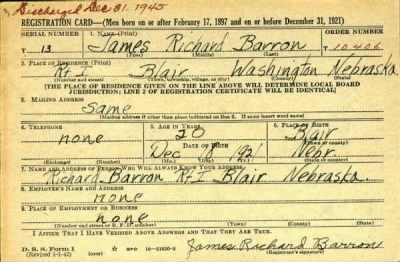 Discharged Dec 31, 1945
REGISTRATION CARD—(Men born on or after February 17, 1897 and on or before December 31, 1921)
SERIAL NUMBER 1. NAME (Print) ORDER NUMBER
T 13 James Richard Barron 10406
(First) (Middle) (Last)
2. PLACE OF RESIDENCE (Print)
Rt 1 Blair Washington Nebraska
(Number and street) (Town, township, village, or city) (County) (State)
[THE PLACE OF RESIDENCE GIVEN ON THE LINE ABOVE WILL DETERMINE LOCAL BOARD
JURISDICTION; LINE 2 OF REGISTRATION CERTIFICATE WILL BE IDENTICAL]
3. MAILING ADDRESS
Same
(Mailing address if other than place indicated on line 2. If same insert word same)
4. TELEPHONE 5. AGE IN YEARS 6. PLACE OF BIRTH
none 20 Blair
DATE OF BIRTH (Town or county)
Dec 1921 Nebr.
(Exchange) (Number) (Mo.) (Day) (Yr.) (State or country)
7. NAME AND ADDRESS OF PERSON WHO WILL ALWAYS KNOW YOUR ADDRESS
Richard Barron Rt 1 Blair Nebraska.
8. EMPLOYER'S NAME AND ADDRESS
none
9. PLACE OF EMPLOYMENT OR BUSINESS
none
(Number and street or R. F. D. number) (Town) (County) (State)
I AFFIRM THAT I HAVE VERIFIED ABOVE ANSWERS AND THAT THEY ARE TRUE.
D. S. S. Form 1
(Revised 1-1-42) (over) 16-21630-2 James Richard Barron
(Registrant's signature)